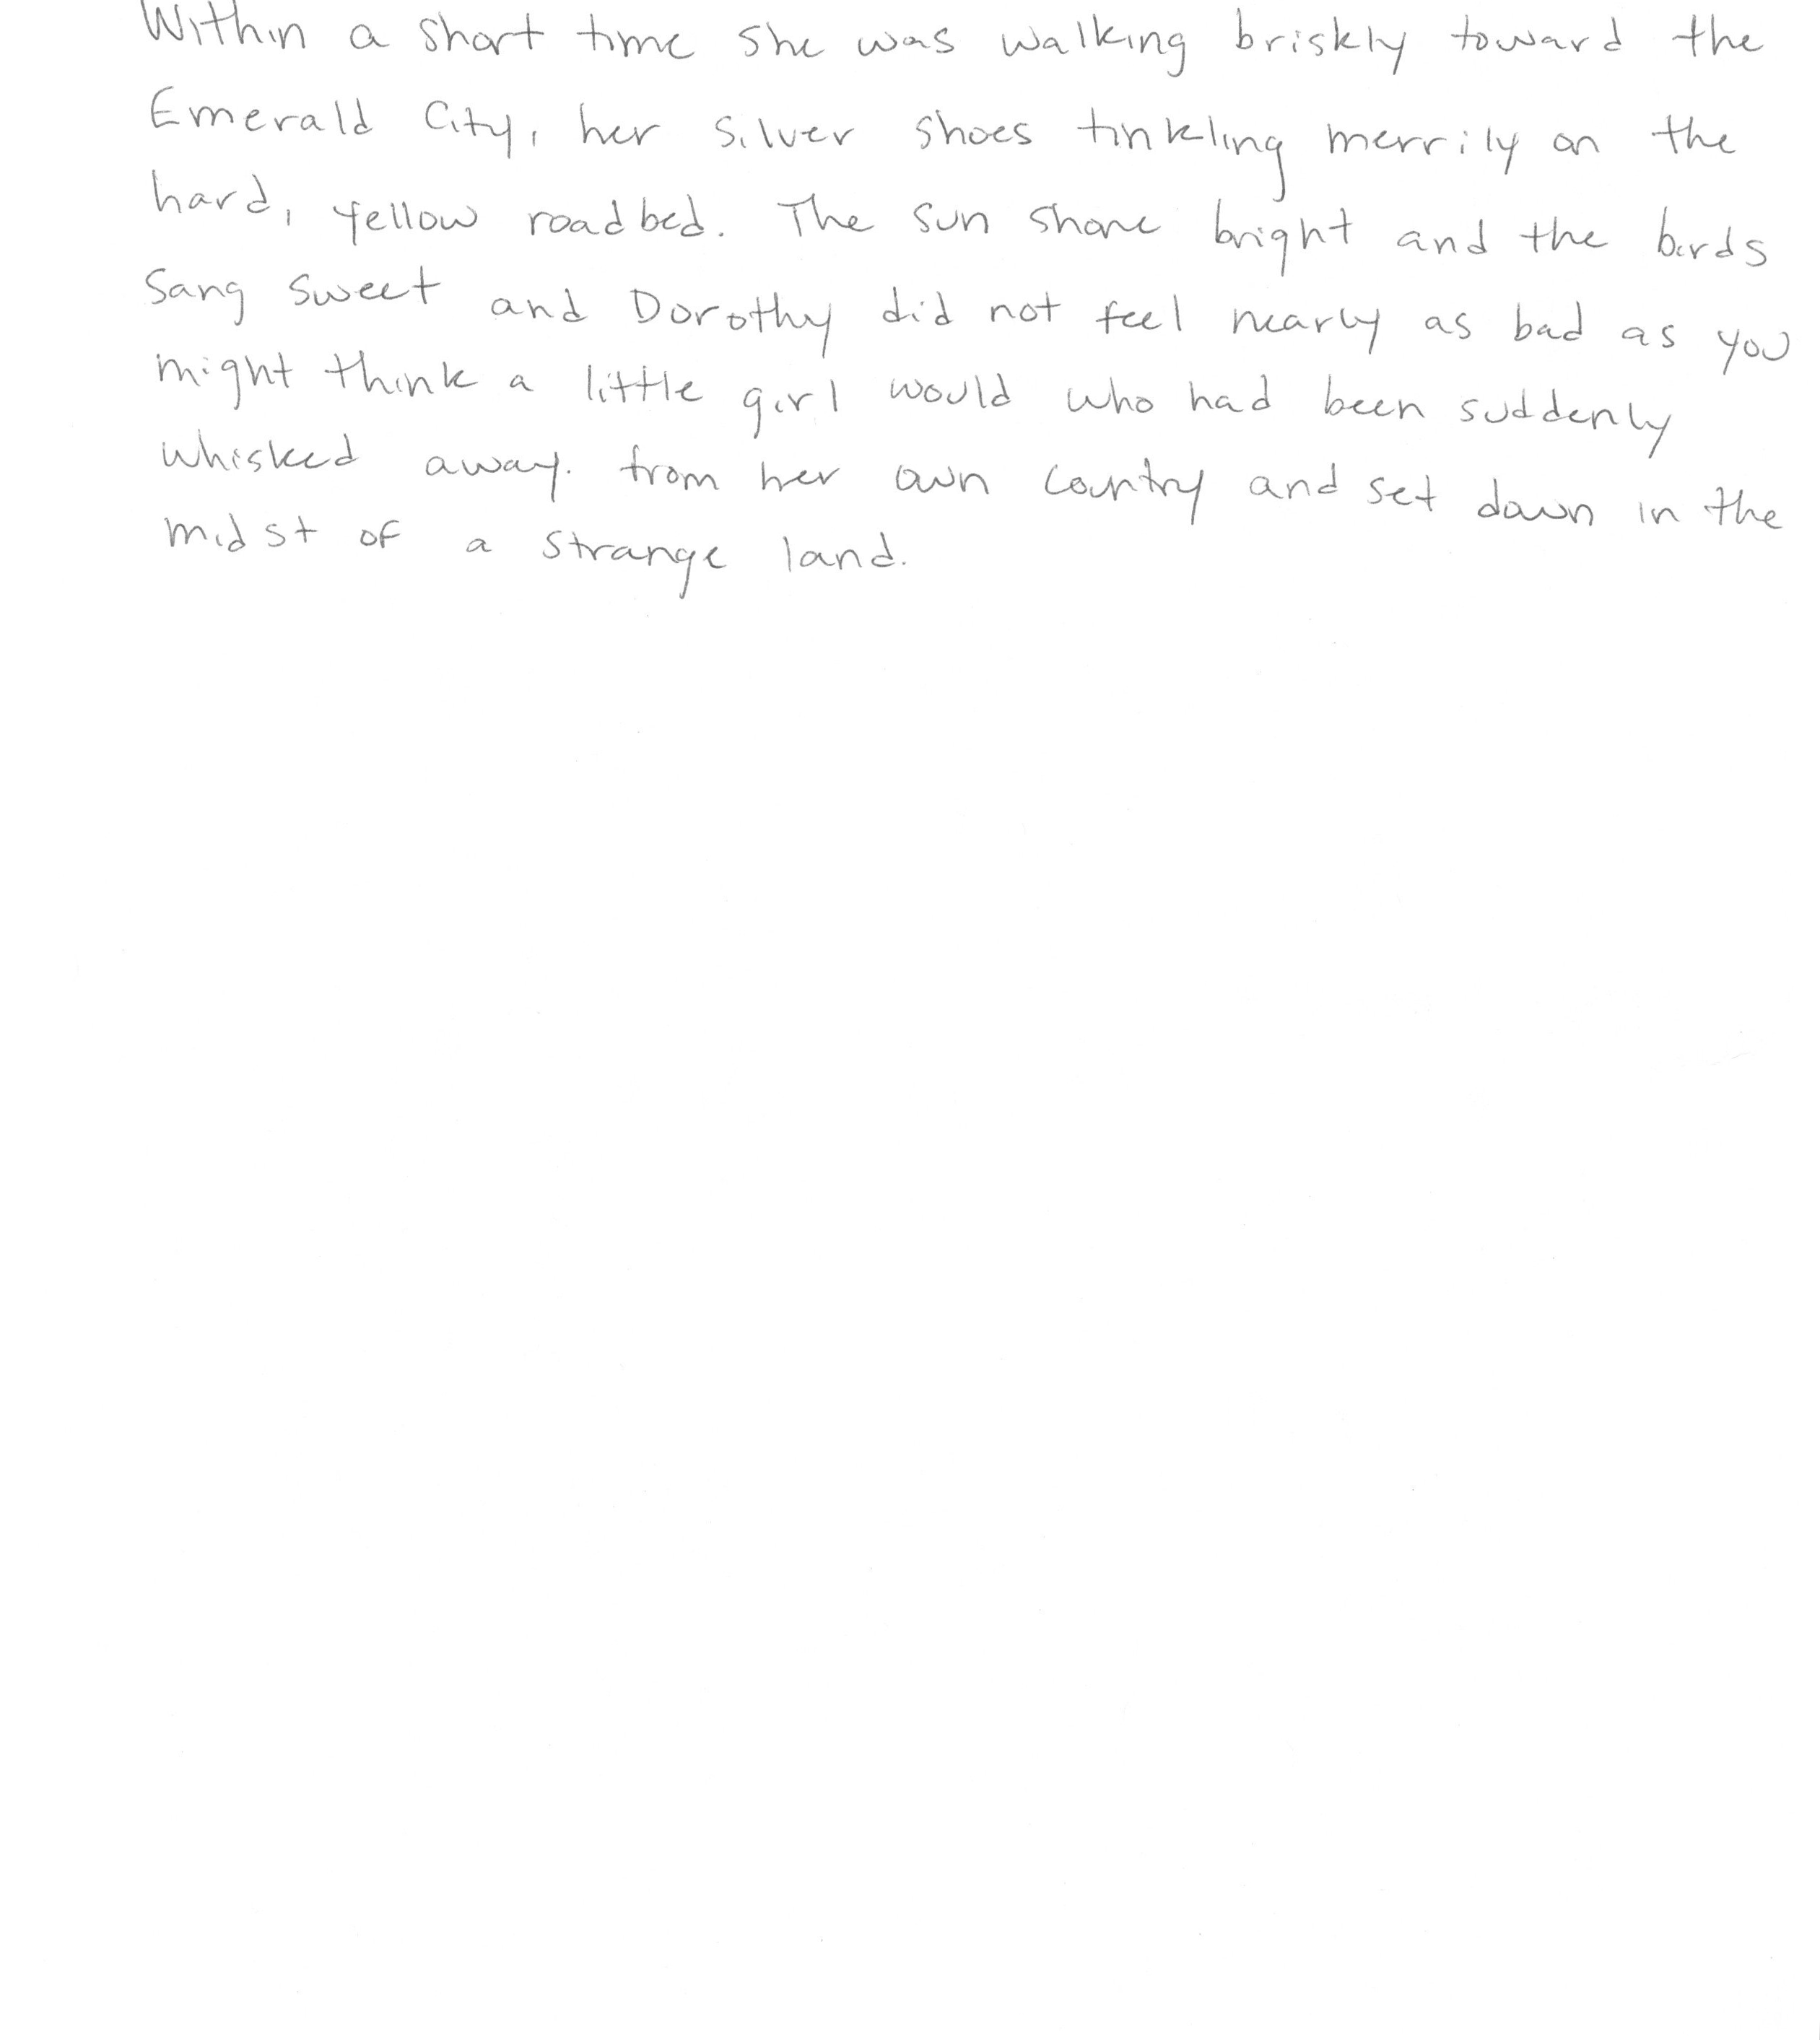 Within a short time she was walking briskly toward the
Emerald City, her silver shoes tinkling merrily on the
hard, yellow roadbed. The sun shone bright and the birds
sang sweet and Dorothy did not feel nearly as bad as you
might think a little girl would who had been suddenly
whisked away. from her own country and set down in the
midst of a strange land.